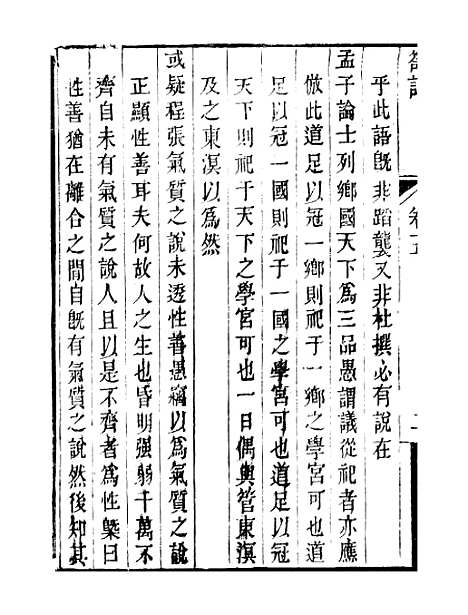 乎此語旣非蹈襲又非杜撰必有說在
孟子論士列鄉國天下爲三品愚謂議從祀者亦應
倣此道足以冠一鄉則祀于一鄉之學宮可也道
足以冠一國則祀于一國之學宮可也道足以冠
天下則祀于天下之學宮可也一日偶與管東溟
及之東溟以爲然
或疑程張氣質之說未透性善愚竊以爲氣質之說
正顯性善耳夫何故人之生也昏明强弱千萬不
齊自未有氣質之說人且以是不齊者爲性槩曰
性善猶在離合之閒自旣有氣質之說然後知其